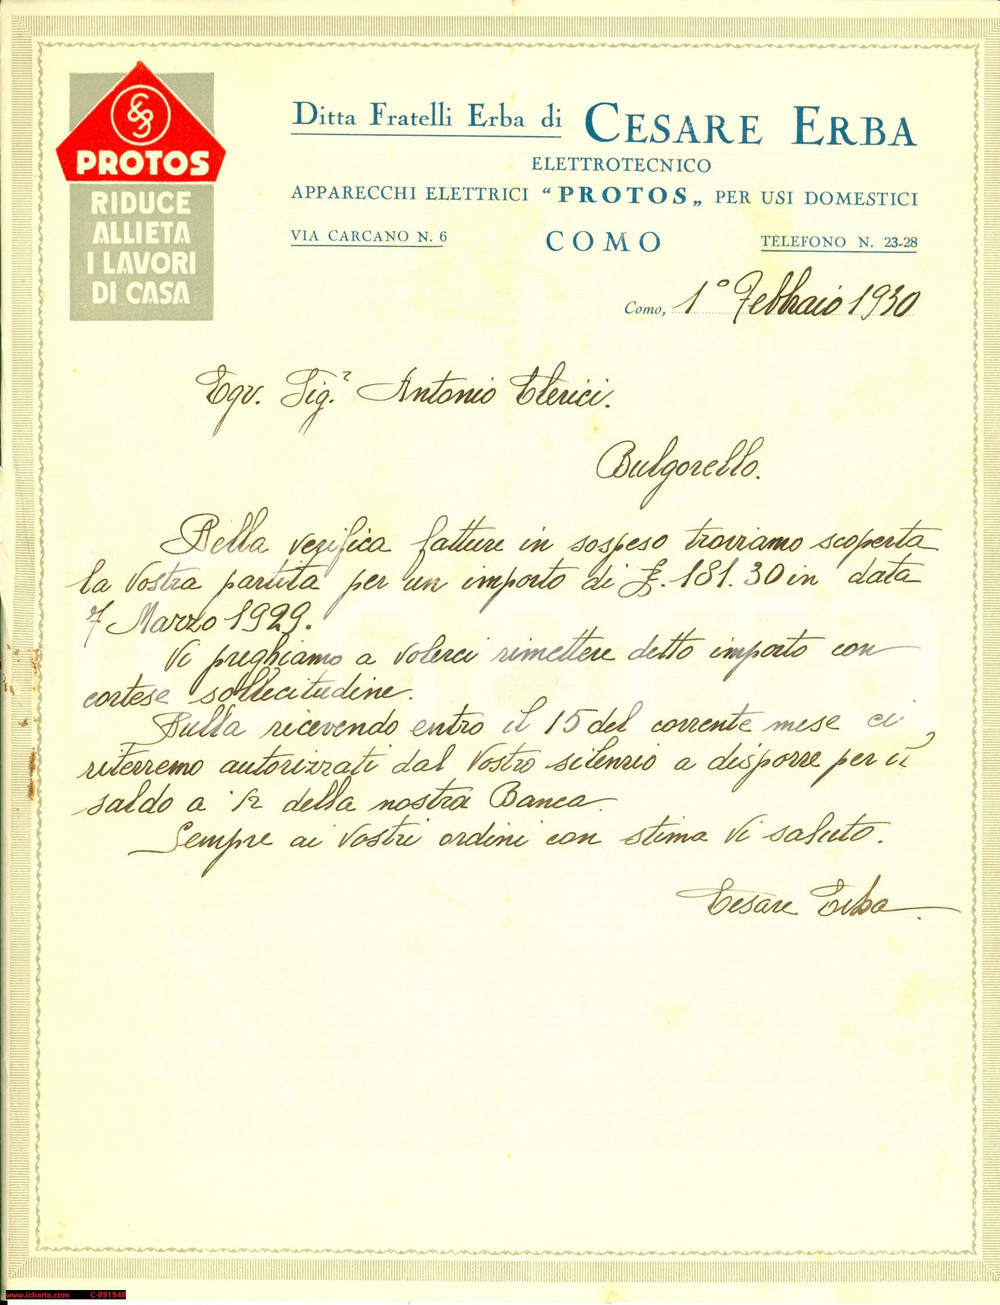 PROTOS
RIDUCE
ALLIETA
I LAVORI
DI CASA
Ditta Fratelli Erba di CESARE ERBA
ELETTROTECNICO
APPARECCHI ELETTRICI “PROTOS„ PER USI DOMESTICI
VIA CARCANO N. 6 COMO TELEFONO N. 23-28
Como, 1° Febbraio 1930
Egr. Sig.r Antonio Clerici.
Bulgorello.
Dalla verifica fatture in sospeso troviamo scoperta
la Vostra partita per un importo di £. 181.30 in data
7 Marzo 1929.
Vi preghiamo a volerci rimettere detto importo con
cortese sollecitudine.
Nulla ricevendo entro il 15 del corrente mese ci
riterremo autorizzati dal Vostro silenzio a disporre per il
saldo a ½ della nostra Banca.
Sempre ai Vostri ordini con stima Vi saluto.
Cesare Erba.
www.icharta.com C-091948